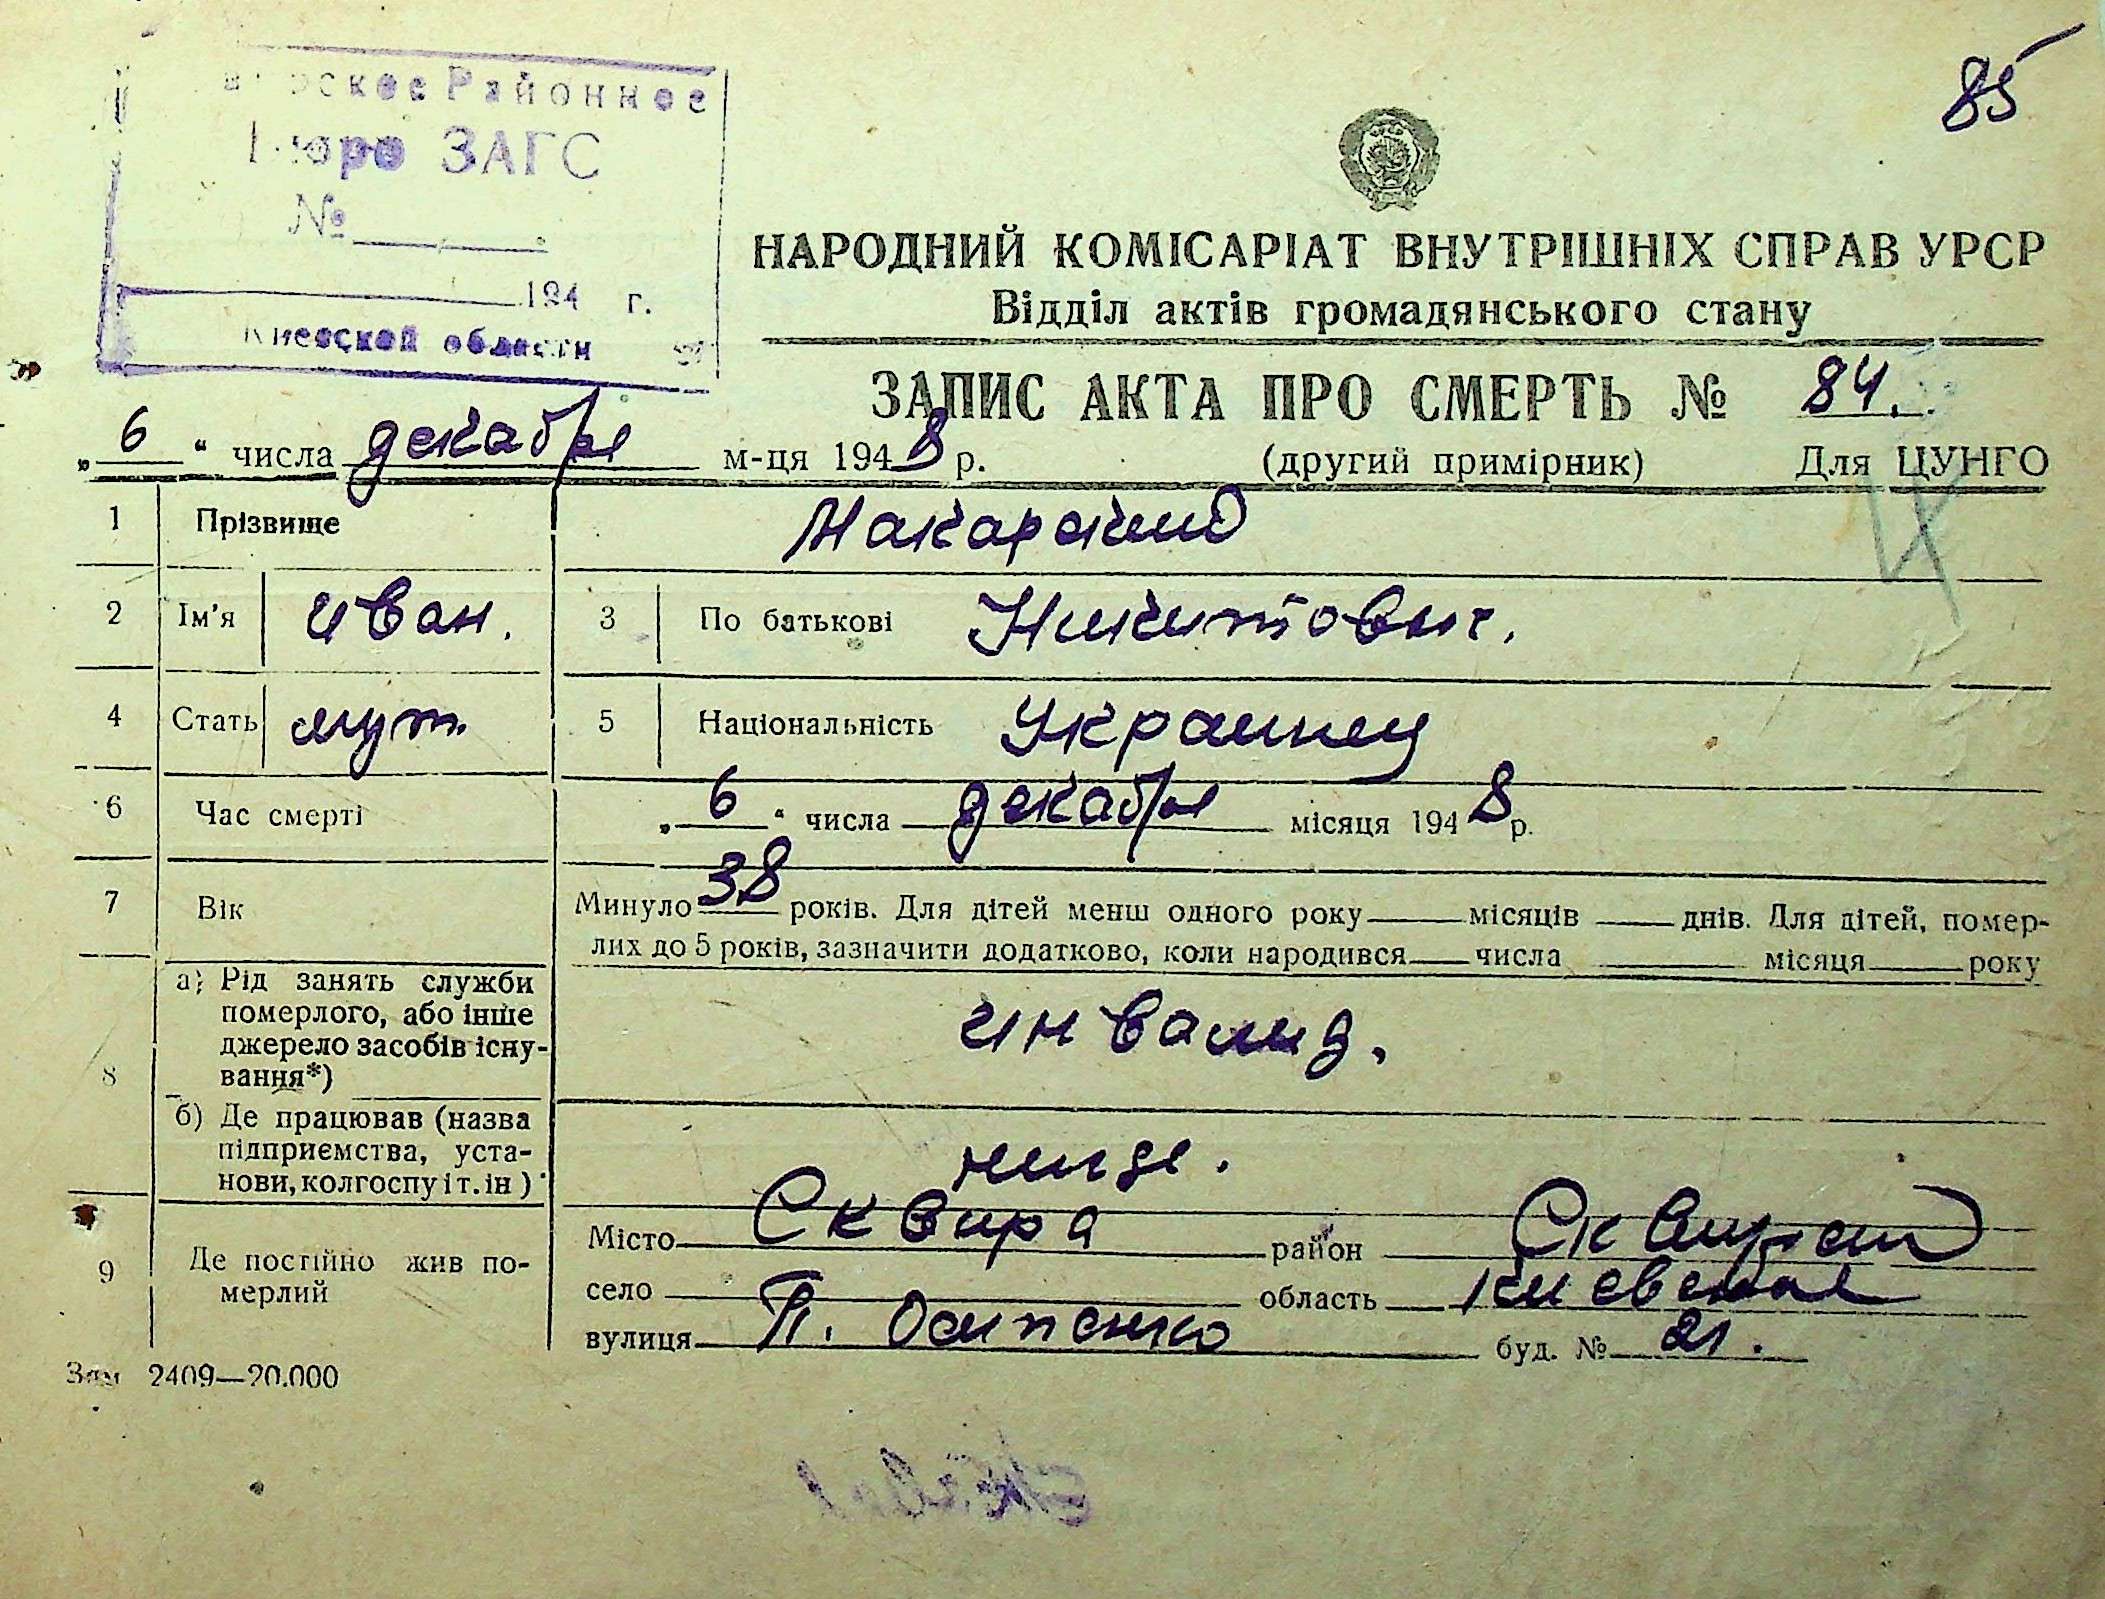 85
Районное
Бюро ЗАГС
№
194 г.
Киевской области
НАРОДНИЙ КОМІСАРІАТ ВНУТРІШНІХ СПРАВ УРСР
Відділ актів громадянського стану
ЗАПИС АКТА ПРО СМЕРТЬ № 84.
„6“ числа декабря м-ця 1948 р. (другий примірник) Для ЦУНГО
1 Прізвище Макарский
2 Ім'я Иван. 3 По батькові Никитович.
4 Стать муж. 5 Національність Украинец
6 Час смерті „6“ числа декабря місяця 1948 р.
7 Вік Минуло 38 років. Для дітей менш одного року місяців днів. Для дітей, помер-
лих до 5 років, зазначити додатково, коли народився числа місяця року
8 а) Рід занять служби
померлого, або інше
джерело засобів існу-
вання*)
инвалид.
б) Де працював (назва
підприємства, уста-
нови, колгоспу і т. ін)
нигде.
9 Де постійно жив по-
мерлий
Місто Сквира район Сквирский
село область Киевская
вулиця П. Осипенко буд. № 21.
Зам 2409—20.000